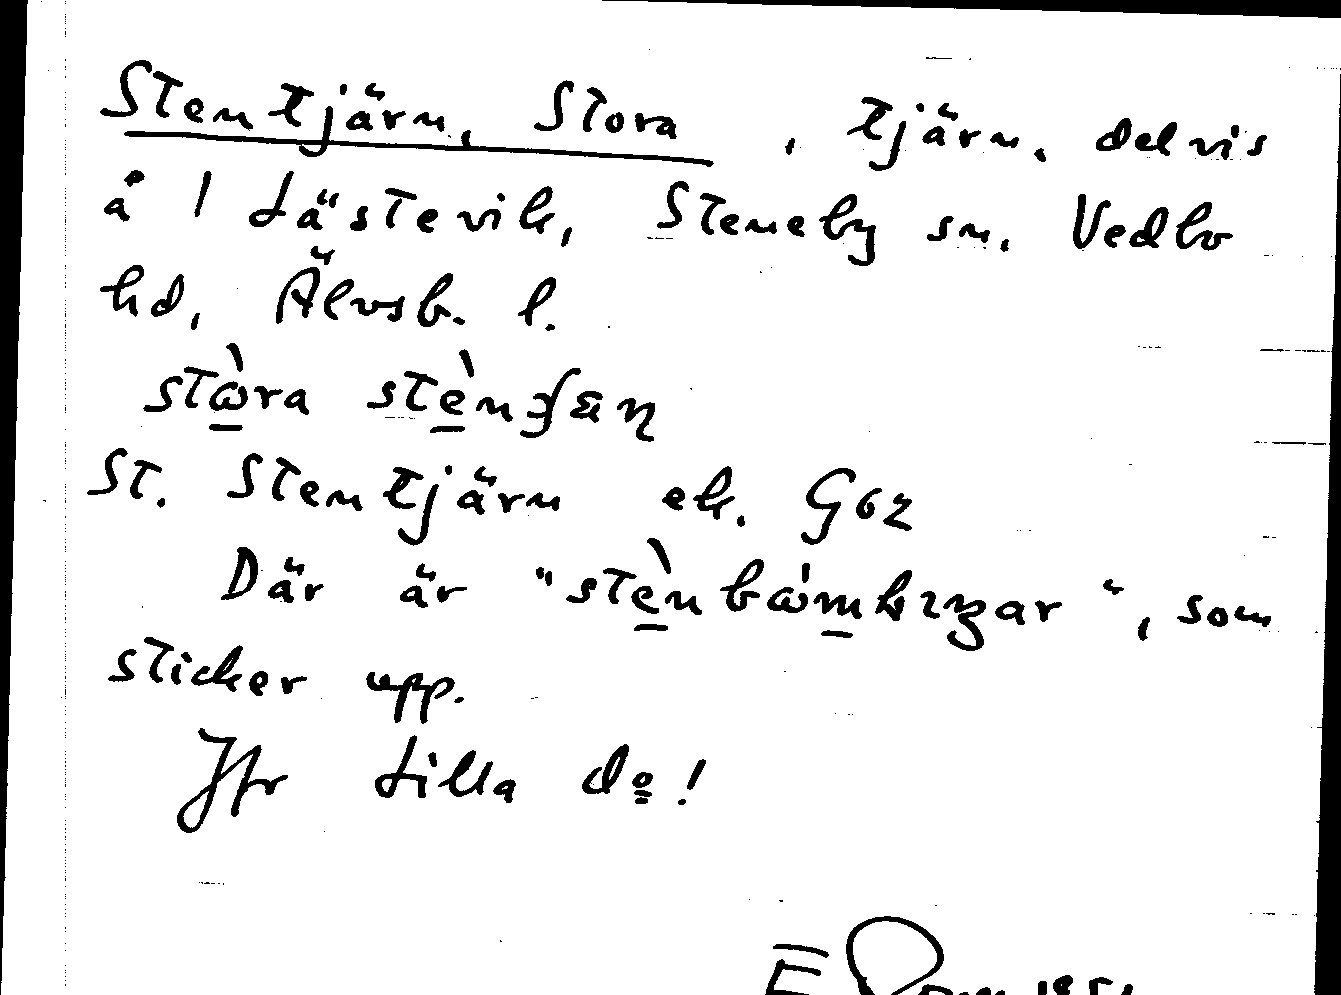 Stentjärn, Stora, tjärn, delvis
å 1 Lästevik, Steneby sn. Vedbo
hd, Älvsb. l.
stɷ̀ra stèn
St. Stentjärn ek. G62
Där är "stènbɷ́mkɪŋar", som
sticker upp.
Jfr Lilla do!
E